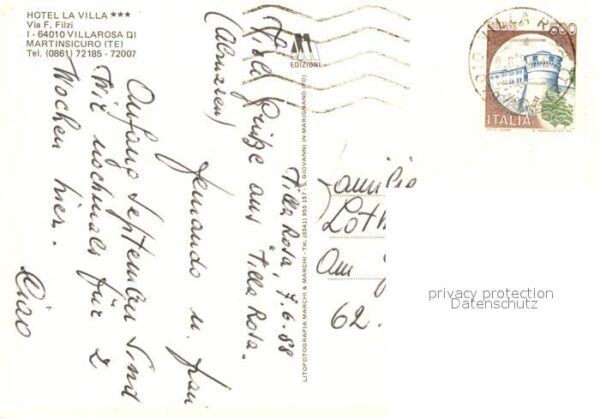 HOTEL LA VILLA ★★★
Via F. Filzi
I - 64010 VILLAROSA DI
MARTINSICURO (TE)
Tel. (0861) 72185 - 72007
Villa Rosa, 7.6.88
Viele Grüße aus Villa Rosa.
(Abruzzen)
Fernando u. Frau
Anfang September sind
wir nochmals für 2
Wochen hier.
Ciao
EDIZIONI
LITOFOTOGRAFIA MARCHI & MARCHI - Tel. (0541) 955 157 - S. GIOVANNI IN MARIGNANO (FO)
ITALIA
Familie
Loth
Am
62.
privacy protection
Datenschutz